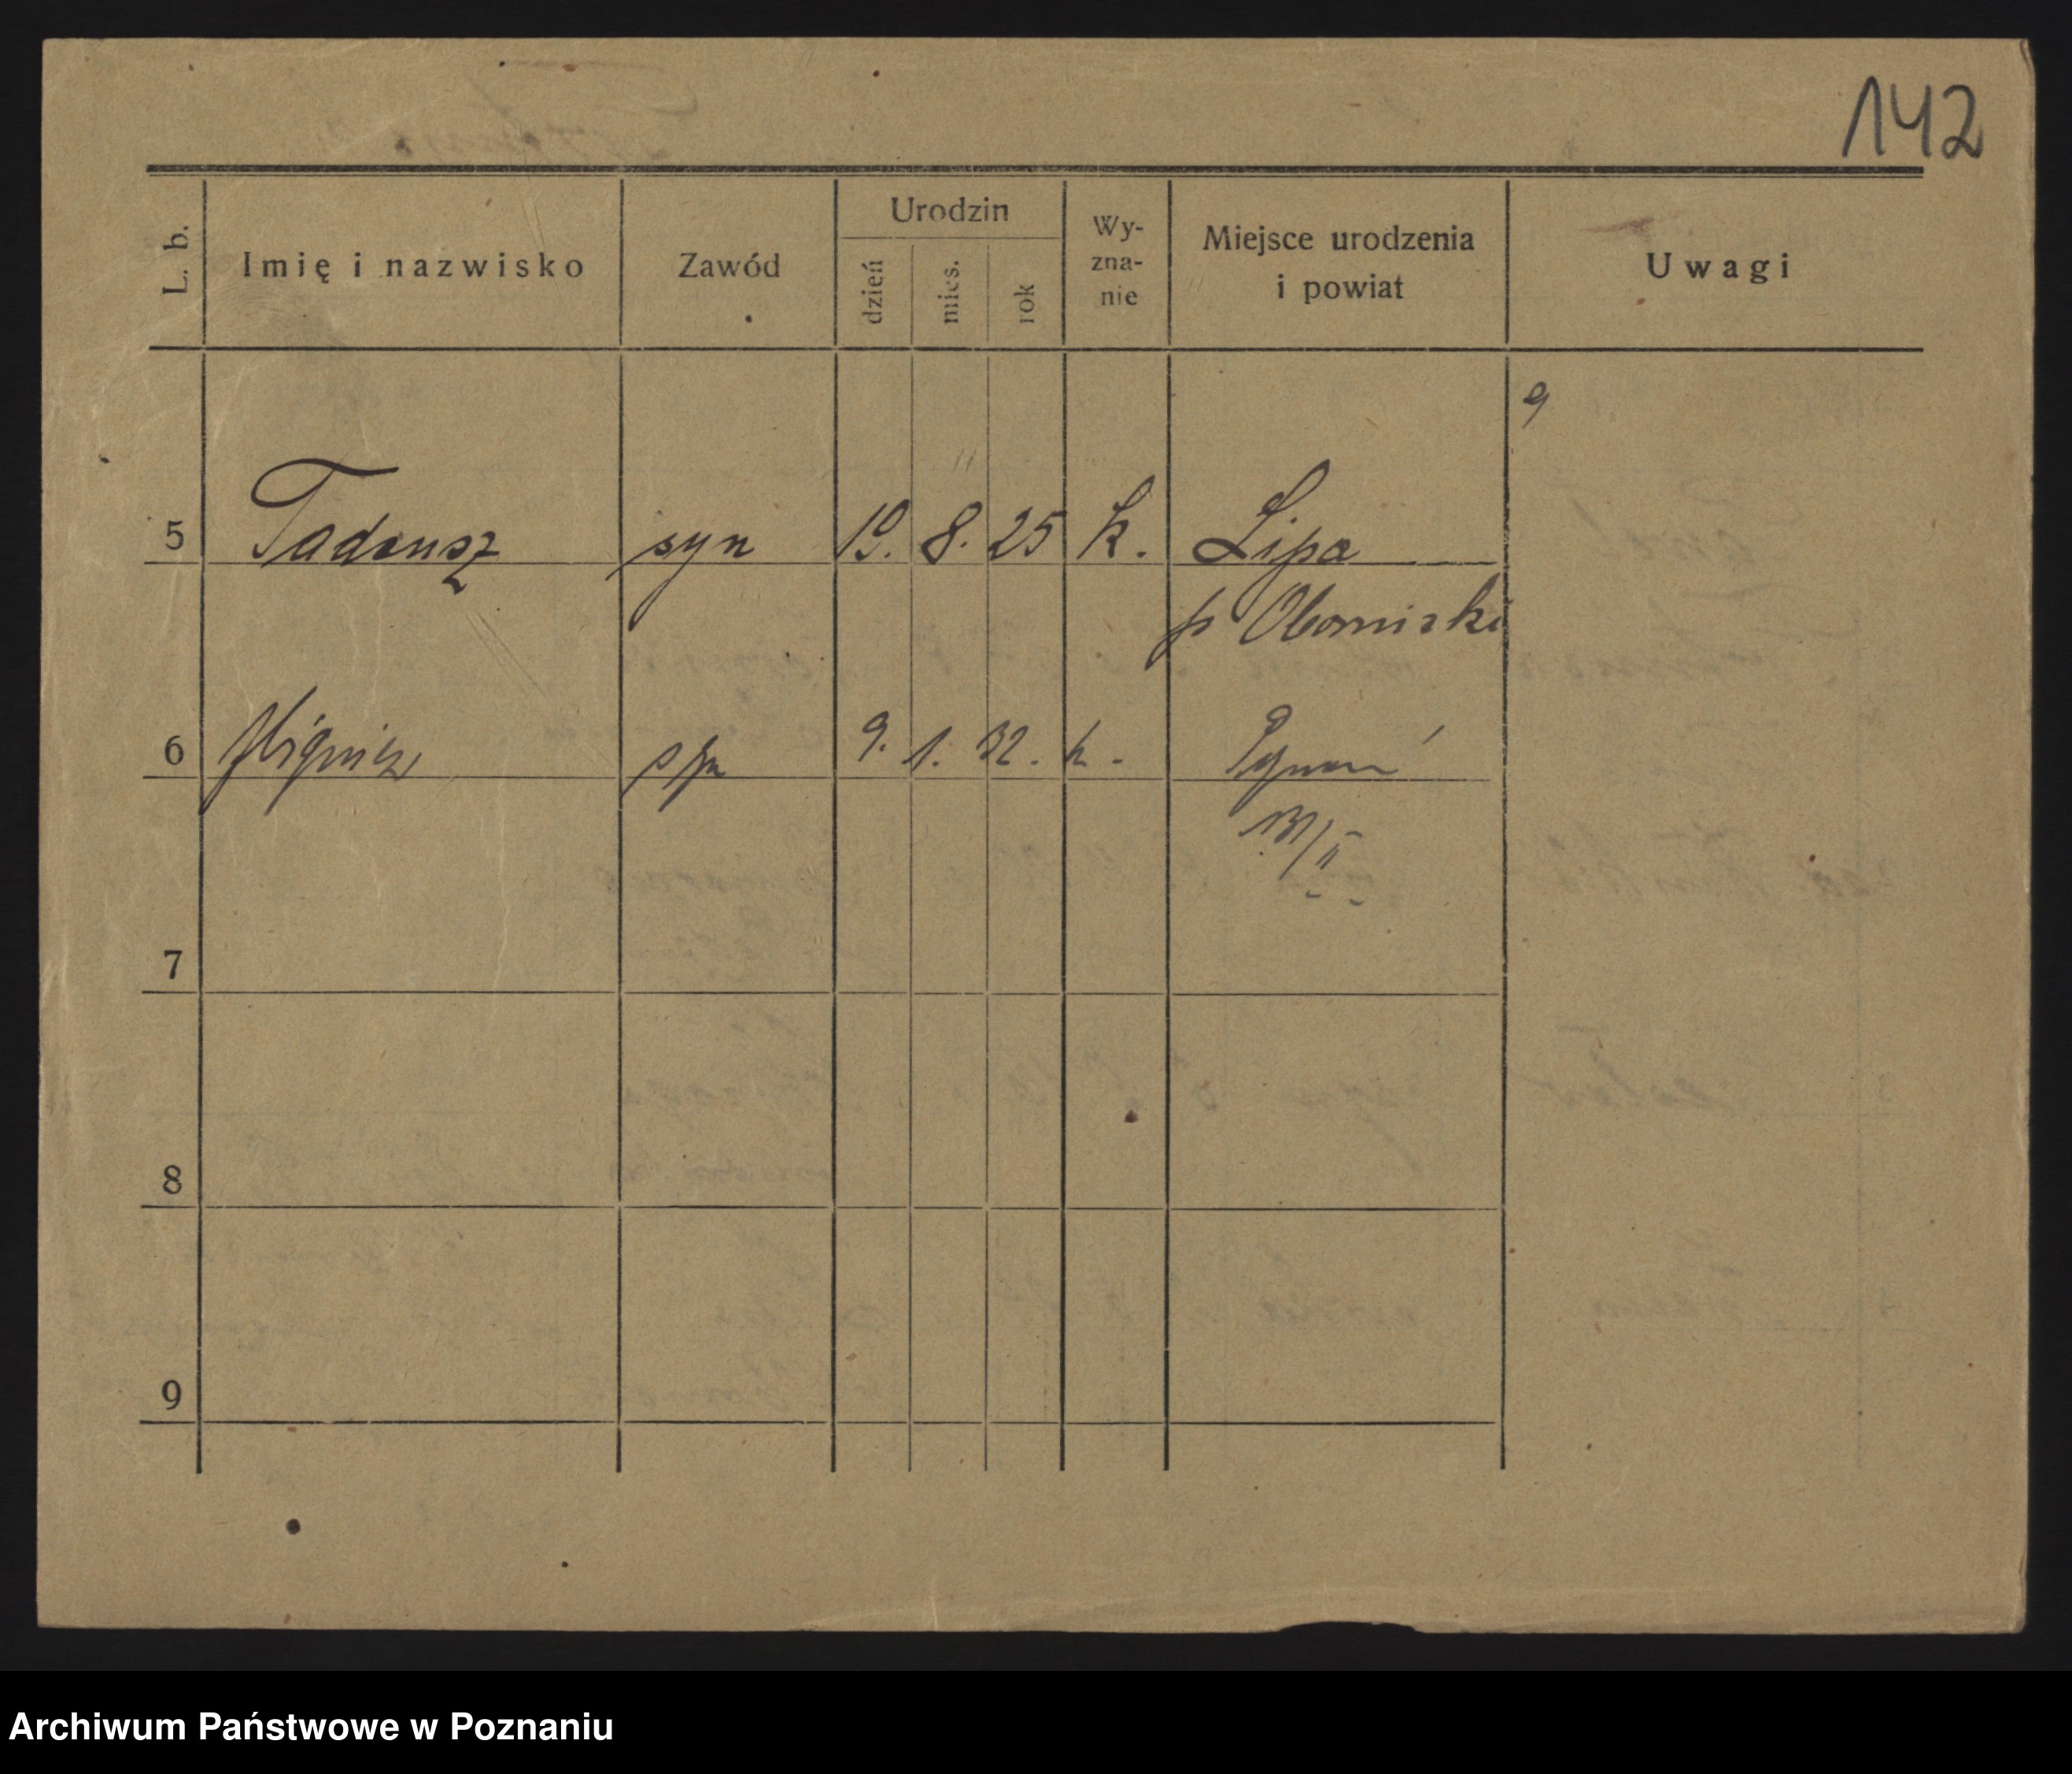 142
L. b.
Imię i nazwisko
Zawód
Urodzin
dzień
mies.
rok
Wy-
zna-
nie
Miejsce urodzenia
i powiat
Uwagi
5 Tadeusz syn 19. 8. 25 k. Lipa
p Obornicki
6 Zbigniew syn 9. 1. 32. k. Poznań
131/II
7
8
9
Archiwum Państwowe w Poznaniu